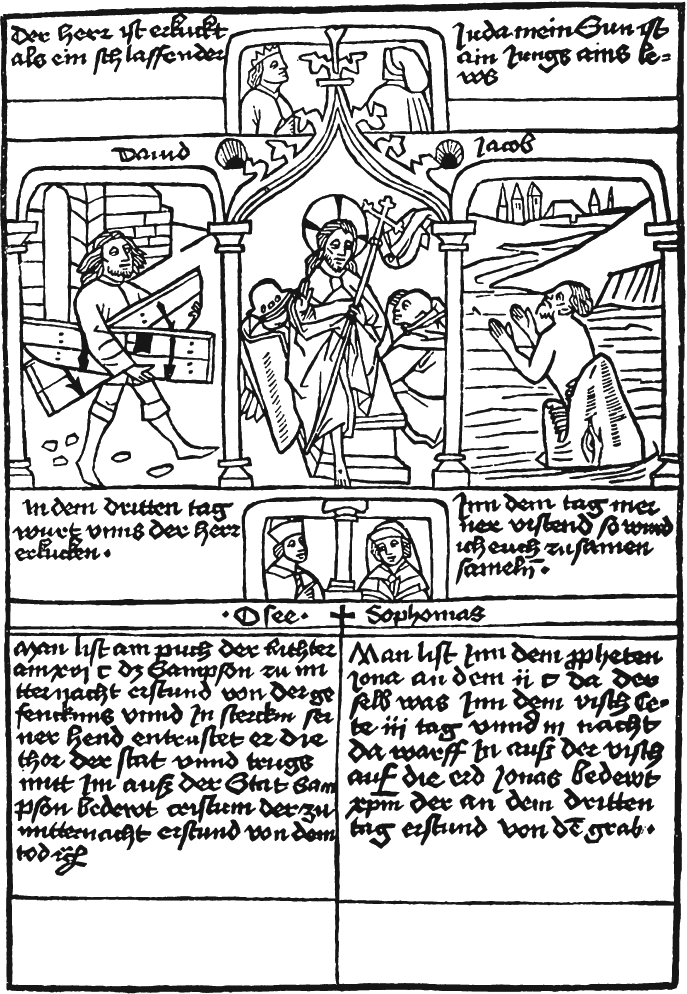 Der herr ist erkuckt
als ein schlaffender
Juda mein Sun ist
ain Jungs ains le-
ws
Dauid
Jacob
In dem dritten tag
wurt vnns der herr
erkucken.
Inn dem tag mei
ner vistend so wurd
ich euch zu samen
sameln.
.Osee. + Sophonias
Man list am puch der Richter
am xvj c dz Sampson zu mi
tternacht erstund von der ge
fencknus vnnd In sterckin sei
ner hend entrüstet er die
thor der stat vnnd trugs
mitt Im auß der Stat Sam
pson bedewt cristum der zu
mitternacht erstund von dem
tod
Man list Inn dem ppheten
Jona an dem ii c da der
selb was Inn dem visch
te iii tag vnnd iii nacht
da warff In auß der visch
auf die erd Jonas bedewt
xpm der an dem dritten
tag erstund von dē grab.